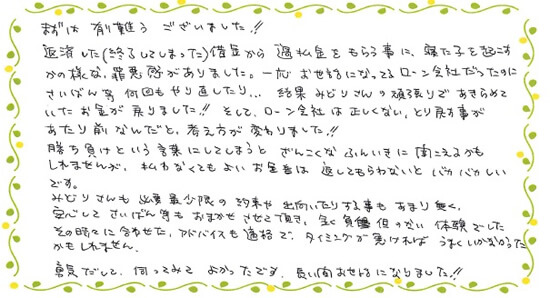 まずは 有り難う ございました!!
返済した(終了してしまった)借金から 過払金をもらう事に、寝た子を起こす
かの様な、罪悪感がありました。一応 お世話になってる ローン会社だったのに
さいばん等 何回もやり直したり... 結果 みどりさんの頑張りで あきらめて
いたお金が 戻りました!! そして、ローン会社は正しくない、とり戻す事が
あたり前なんだと、考え方が 変わりました!!
勝ち負けという言葉にしてしまうと ざんこくな ふんいきに 聞こえるかも
しれませんが、払わなくてもよいお金は 返してもらわないと バカバカしい
です。
みどりさんも 必要最少限の 約束や 出向いたりする事も あまり無く、
安心して さいばん等も おまかせ させて頂き、全く 負担 のない 体験でした
その時々に合わせた、アドバイスも 適格で、タイミングが 悪ければ うまくいかなかった
かもしれません。
勇気だして、伺ってみて よかったです。長い間お世話になりました!!